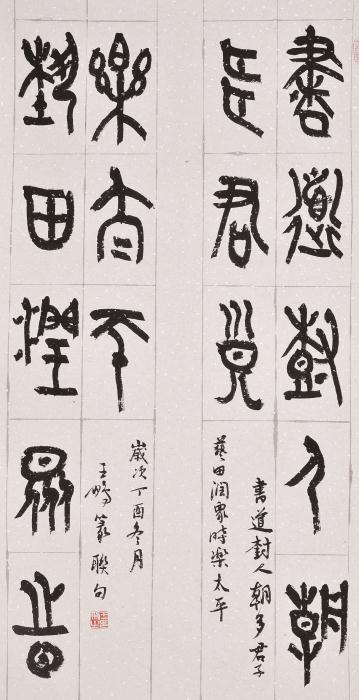 書道尌人朝
多君子
藝田潤眾時
樂太平
書道尌人朝多君子
藝田潤眾時樂太平
歲次丁酉冬月
王鵬篆聯句